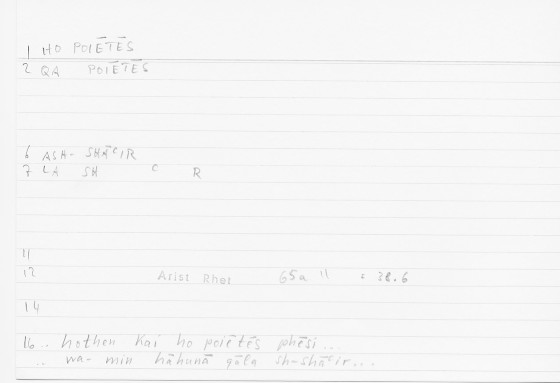 1 HO POIĒTĒS
2 QA POIĒTĒS
6 ASH- SHĀᶜIR
7 LA SH ᶜ R
11
12 Arist Rhet 65a 11 = 28.6
14
16 .. hothen kai ho poiētēs phēsi...
.. wa- min hāhunā qāla sh-shāᶜir...